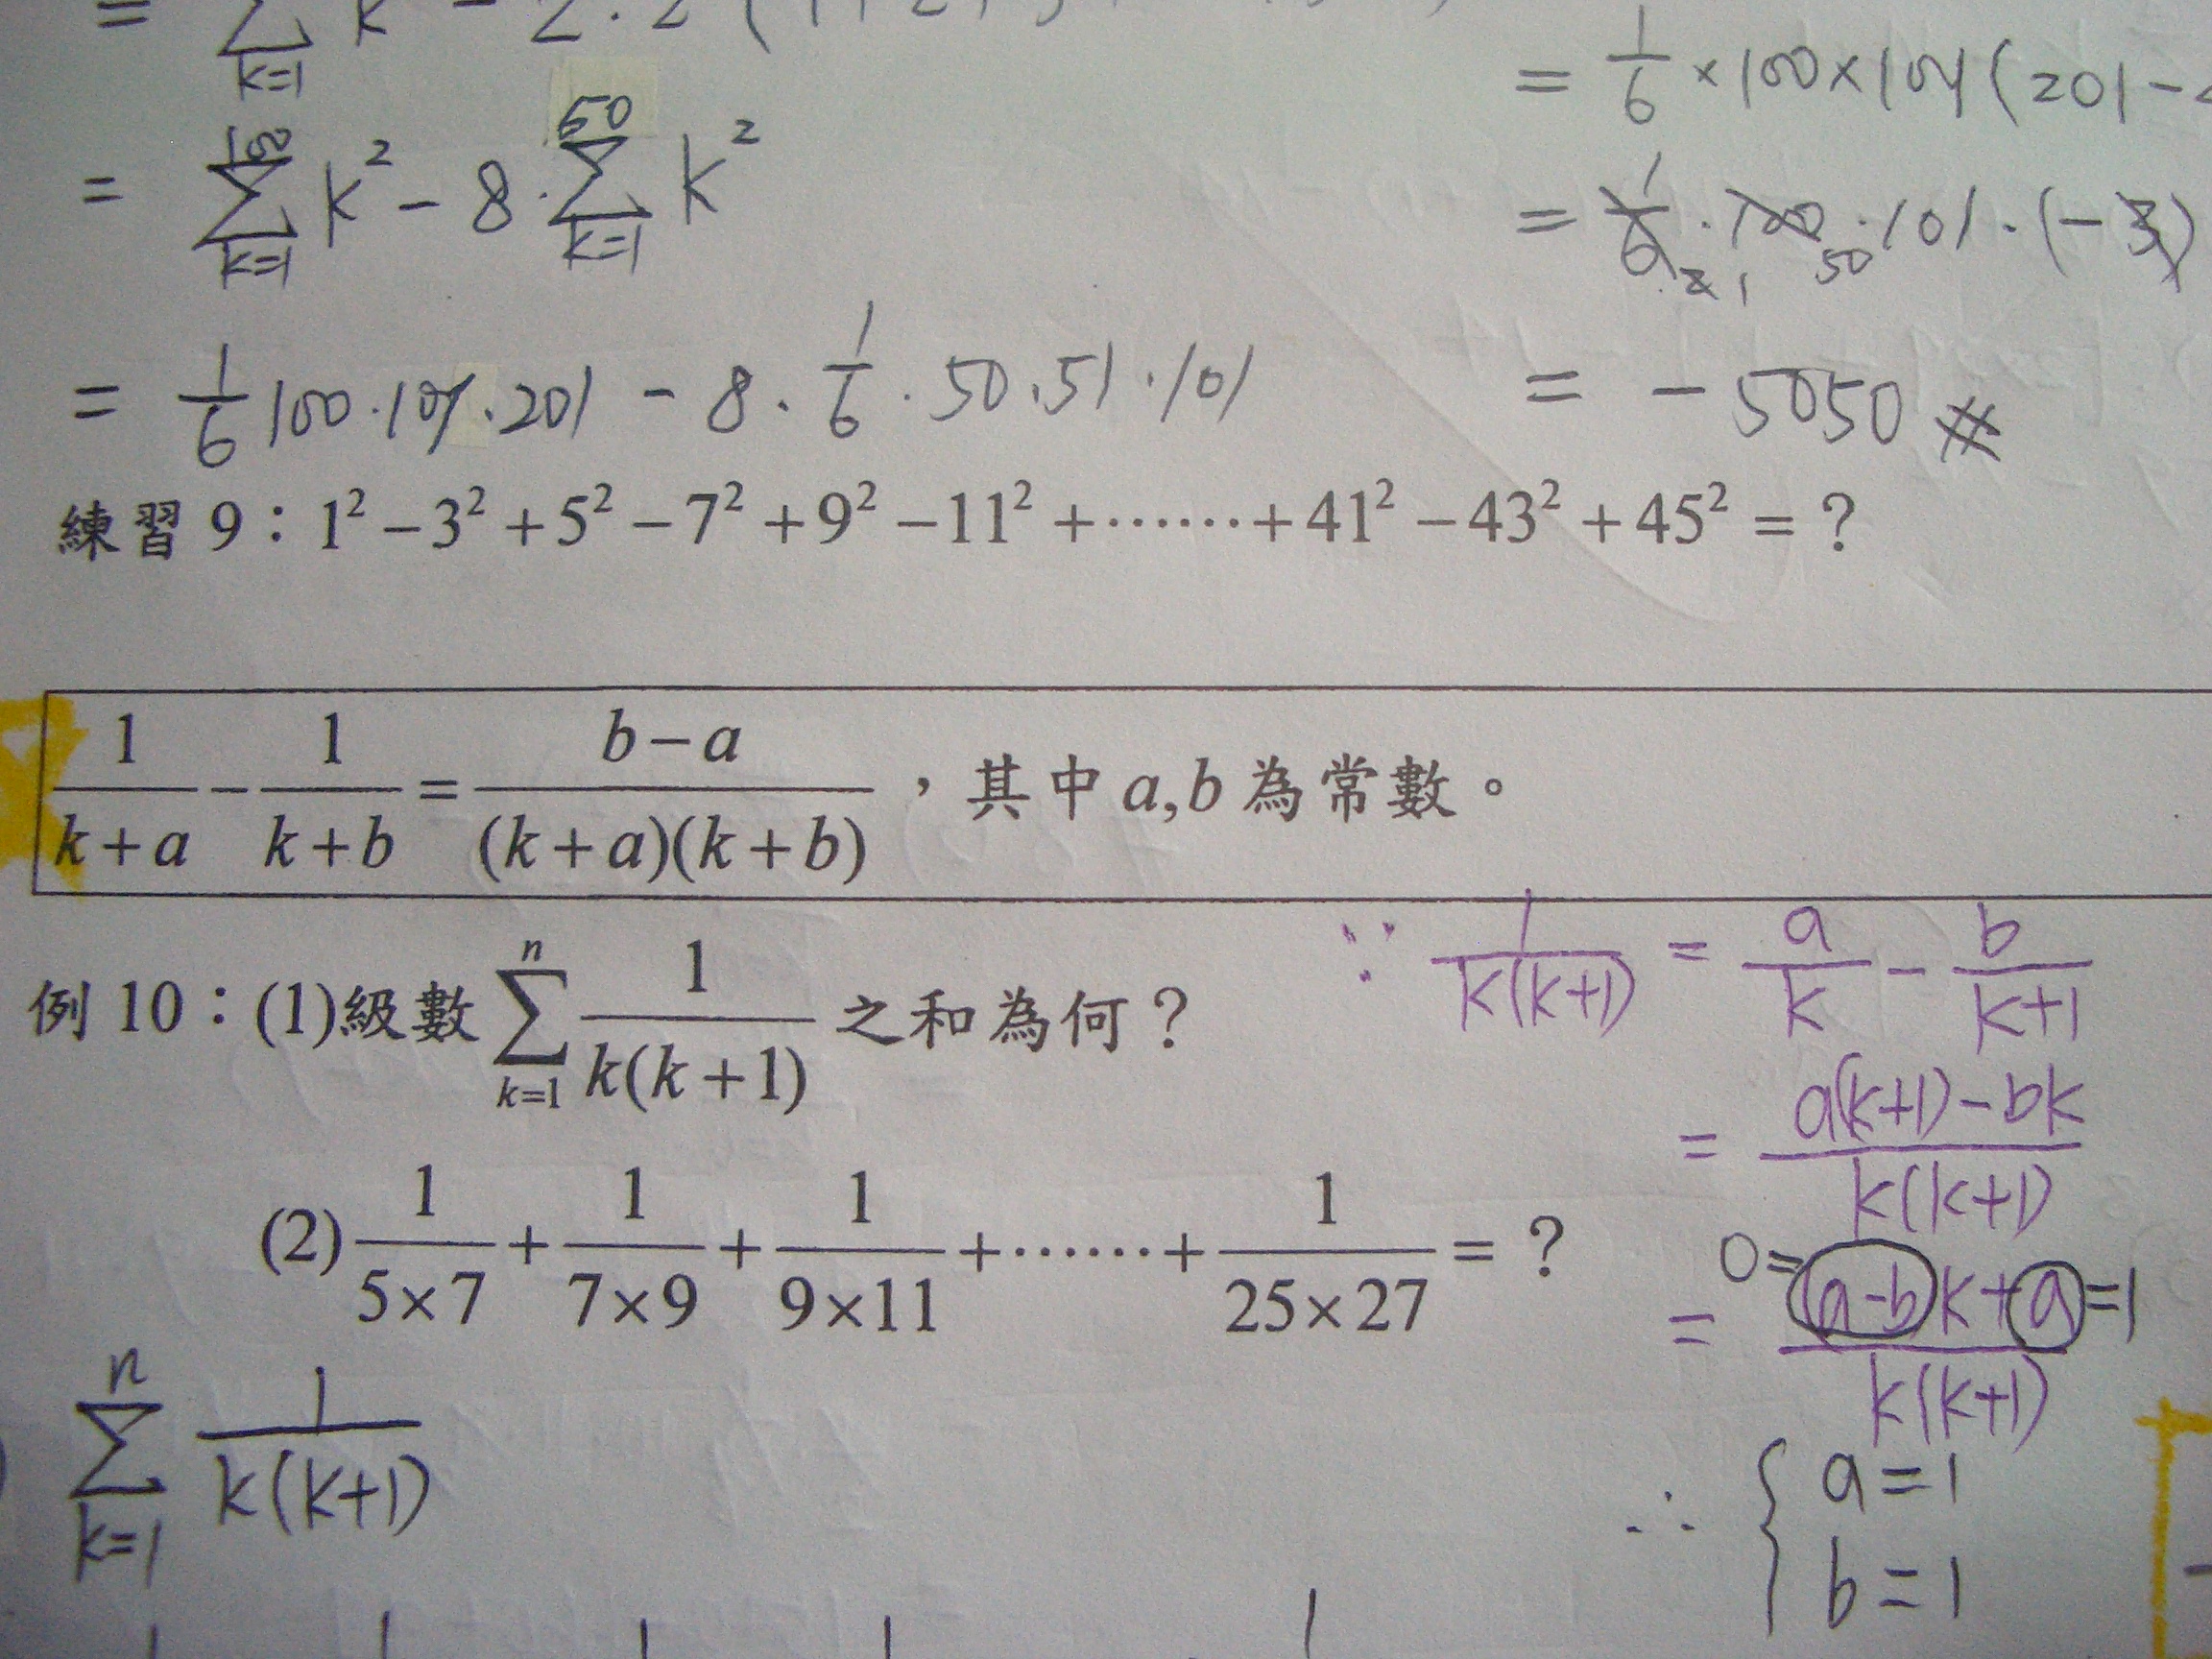 = \sum_{k=1} k - 2·2
= \sum_{k=1}^{100} k² - 8·\sum_{k=1}^{50} k²
= \frac{1}{6} 100·101·201 - 8·\frac{1}{6}·50·51·101
= \frac{1}{6}×100×101(201-
= \frac{1}{6}·100·101·(-3)
2 1 50
= -5050 #
練習 9：1² - 3² + 5² - 7² + 9² - 11² + …… + 41² - 43² + 45² = ？
\frac{1}{k+a} - \frac{1}{k+b} = \frac{b-a}{(k+a)(k+b)}，其中 a,b 為常數。
例 10：(1)級數 \sum_{k=1}^{n} \frac{1}{k(k+1)} 之和為何？
(2) \frac{1}{5×7} + \frac{1}{7×9} + \frac{1}{9×11} + …… + \frac{1}{25×27} = ？
\sum_{k=1}^{n} \frac{1}{k(k+1)}
∵ \frac{1}{k(k+1)} = \frac{a}{k} - \frac{b}{k+1}
= \frac{a(k+1)-bk}{k(k+1)}
0=
= \frac{(a-b)k+a}{k(k+1)} =1
∴ { a=1
b=1